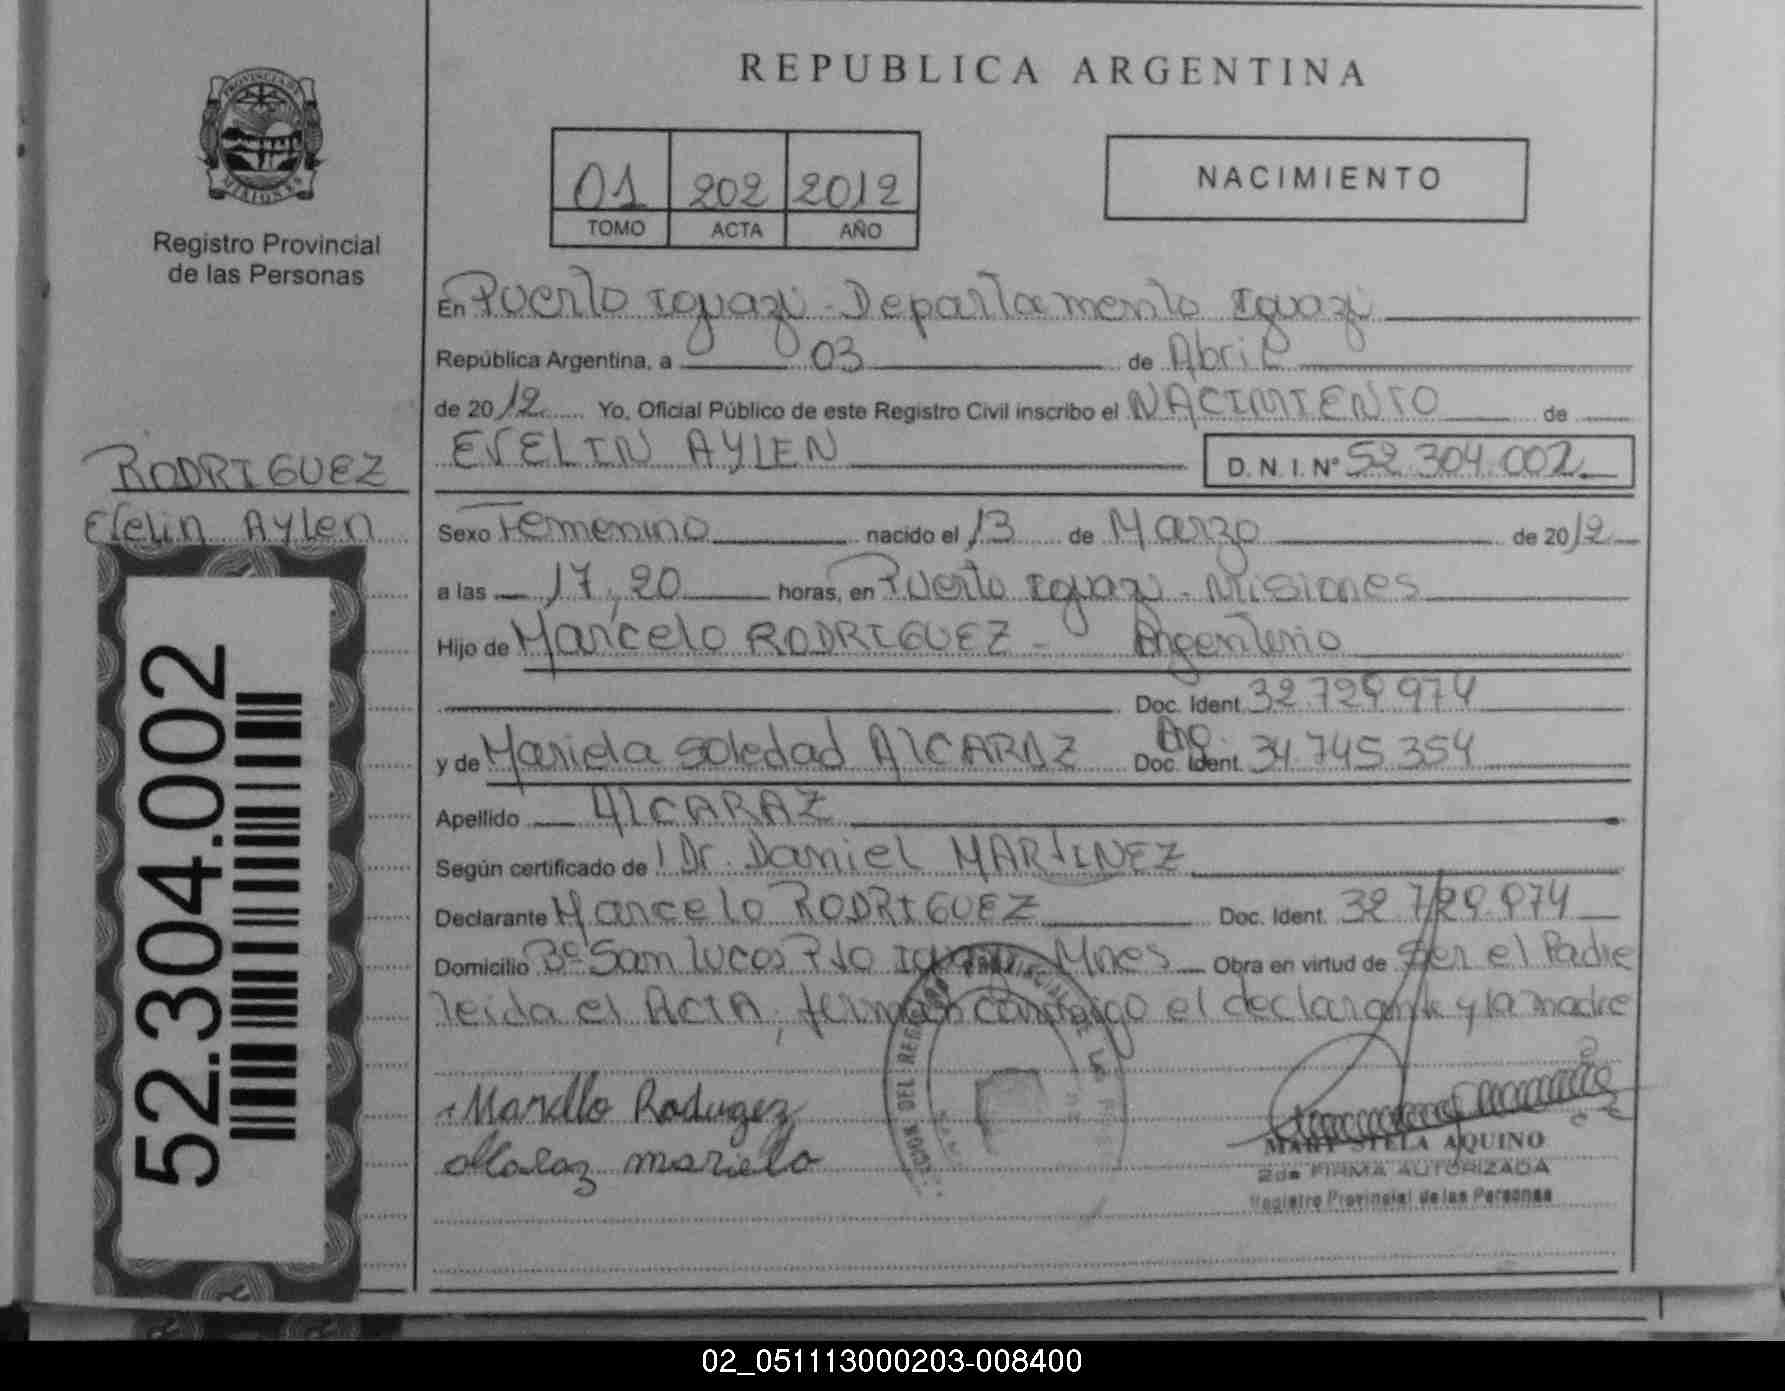 PROVINCIA DE
MISIONES
Registro Provincial
de las Personas
RODRIGUEZ
Evelin Aylen
52.304.002
REPUBLICA ARGENTINA
01 202 2012
TOMO ACTA AÑO
NACIMIENTO
En Puerto Iguazú - Departamento Iguazú
República Argentina, a 03 de Abril
de 2012 Yo, Oficial Público de este Registro Civil inscribo el NACIMIENTO de
EVELIN AYLEN D.N.I. N° 52.304.002
Sexo Femenino nacido el 13 de Marzo de 2012
a las 17,20 horas, en Puerto Iguazú - Misiones
Hijo de Marcelo RODRIGUEZ - Argentino
Doc. Ident. 32.729.974
y de Mariela Soledad ALCARAZ Arg. Doc. Ident. 34.745.354
Apellido ALCARAZ
Según certificado de Dr. Daniel MARTINEZ
Declarante Marcelo RODRIGUEZ Doc. Ident. 32.729.974
Domicilio B° San Lucas Pto Iguazú Mnes Obra en virtud de Ser el Padre
leída el ACTA, firman conmigo el declarante y la madre
Marcelo Rodriguez
Alcaraz mariela
MARY STELA AQUINO
2da FIRMA AUTORIZADA
Registro Provincial de las Personas
02_051113000203-008400